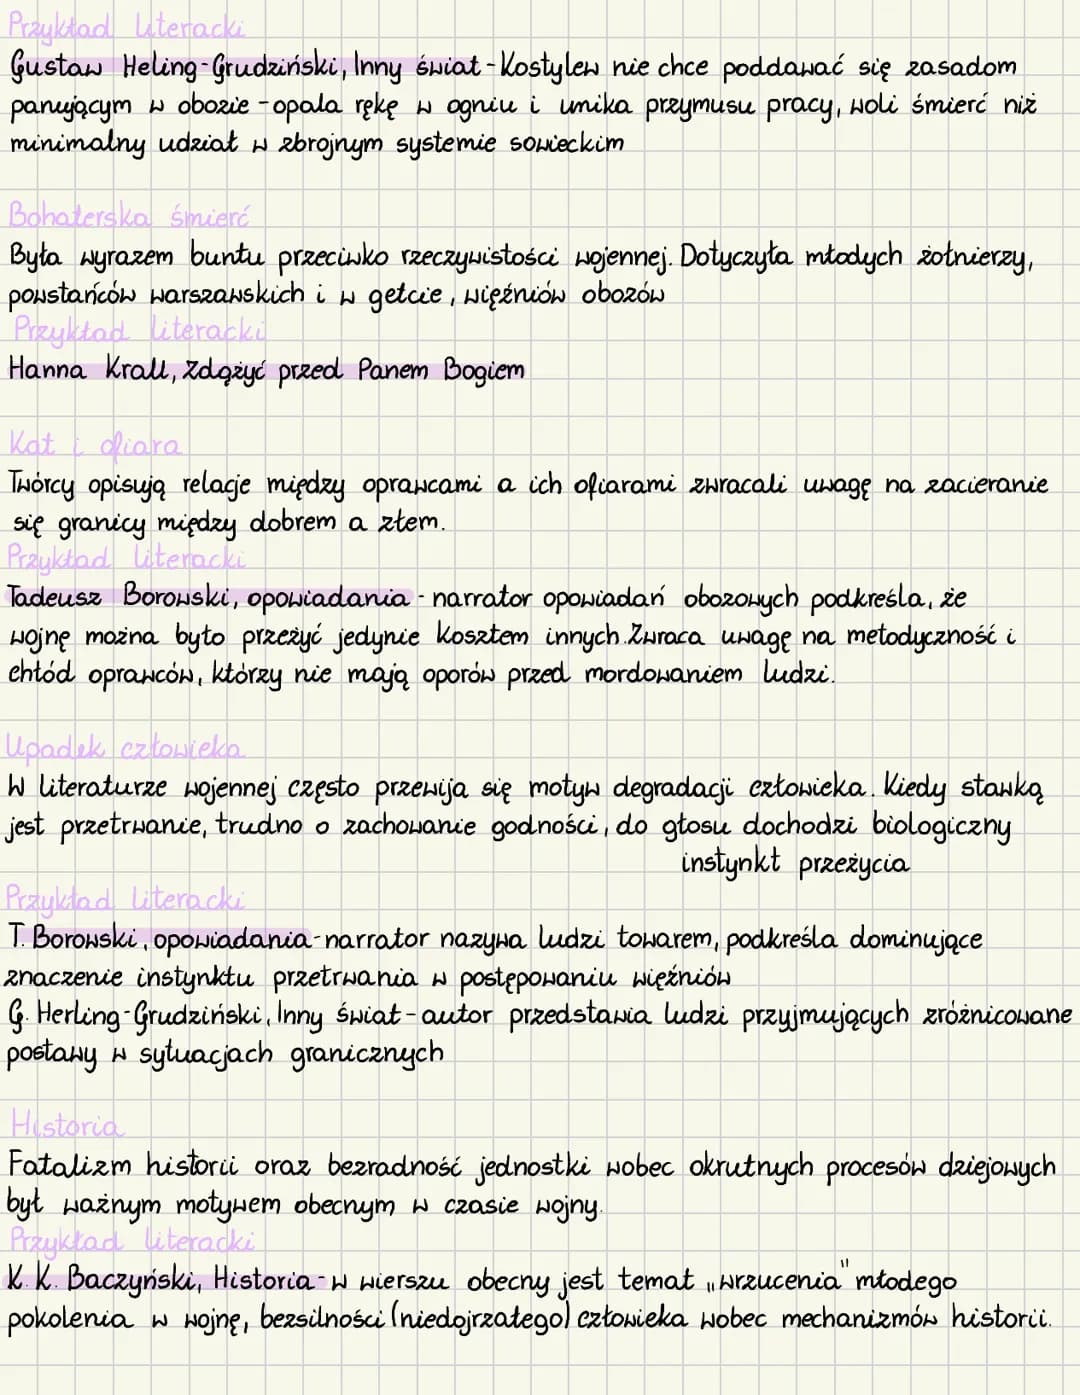 Przykład literacki
Gustaw Heling-Grudziński, Inny świat - Kostylew nie chce poddawać się zasadom
panującym w obozie - opala rękę w ogniu i unika przymusu pracy, woli śmierć niż
minimalny udział w zbrojnym systemie sowieckim
Bohaterska śmierć
Była wyrazem buntu przeciwko rzeczywistości wojennej. Dotyczyła młodych żołnierzy,
powstańców warszawskich i w getcie, więźniów obozów
Przykład literacki
Hanna Krall, Zdążyć przed Panem Bogiem
Kat i ofiara
Twórcy opisują relacje między oprawcami a ich ofiarami zwracali uwagę na zacieranie
się granicy między dobrem a złem.
Przykład literacki
Tadeusz Borowski, opowiadania - narrator opowiadań obozowych podkreśla, że
wojnę można było przeżyć jedynie kosztem innych. Zwraca uwagę na metodyczność i
chłód oprawców, którzy nie mają oporów przed mordowaniem ludzi.
Upadek człowieka
W literaturze wojennej często przewija się motyw degradacji człowieka. Kiedy stawką
jest przetrwanie, trudno o zachowanie godności, do głosu dochodzi biologiczny
instynkt przeżycia
Przykład literacki
T. Borowski, opowiadania - narrator nazywa ludzi towarem, podkreśla dominujące
znaczenie instynktu przetrwania w postępowaniu więźniów
G. Herling-Grudziński, Inny świat - autor przedstawia ludzi przyjmujących zróżnicowane
postawy w sytuacjach granicznych
Historia
Fatalizm historii oraz bezradność jednostki wobec okrutnych procesów dziejowych
był ważnym motywem obecnym w czasie wojny.
Przykład literacki
K. K. Baczyński, Historia - w wierszu obecny jest temat „wrzucenia" młodego
pokolenia w wojnę, bezsilności (niedojrzałego) człowieka wobec mechanizmów historii.